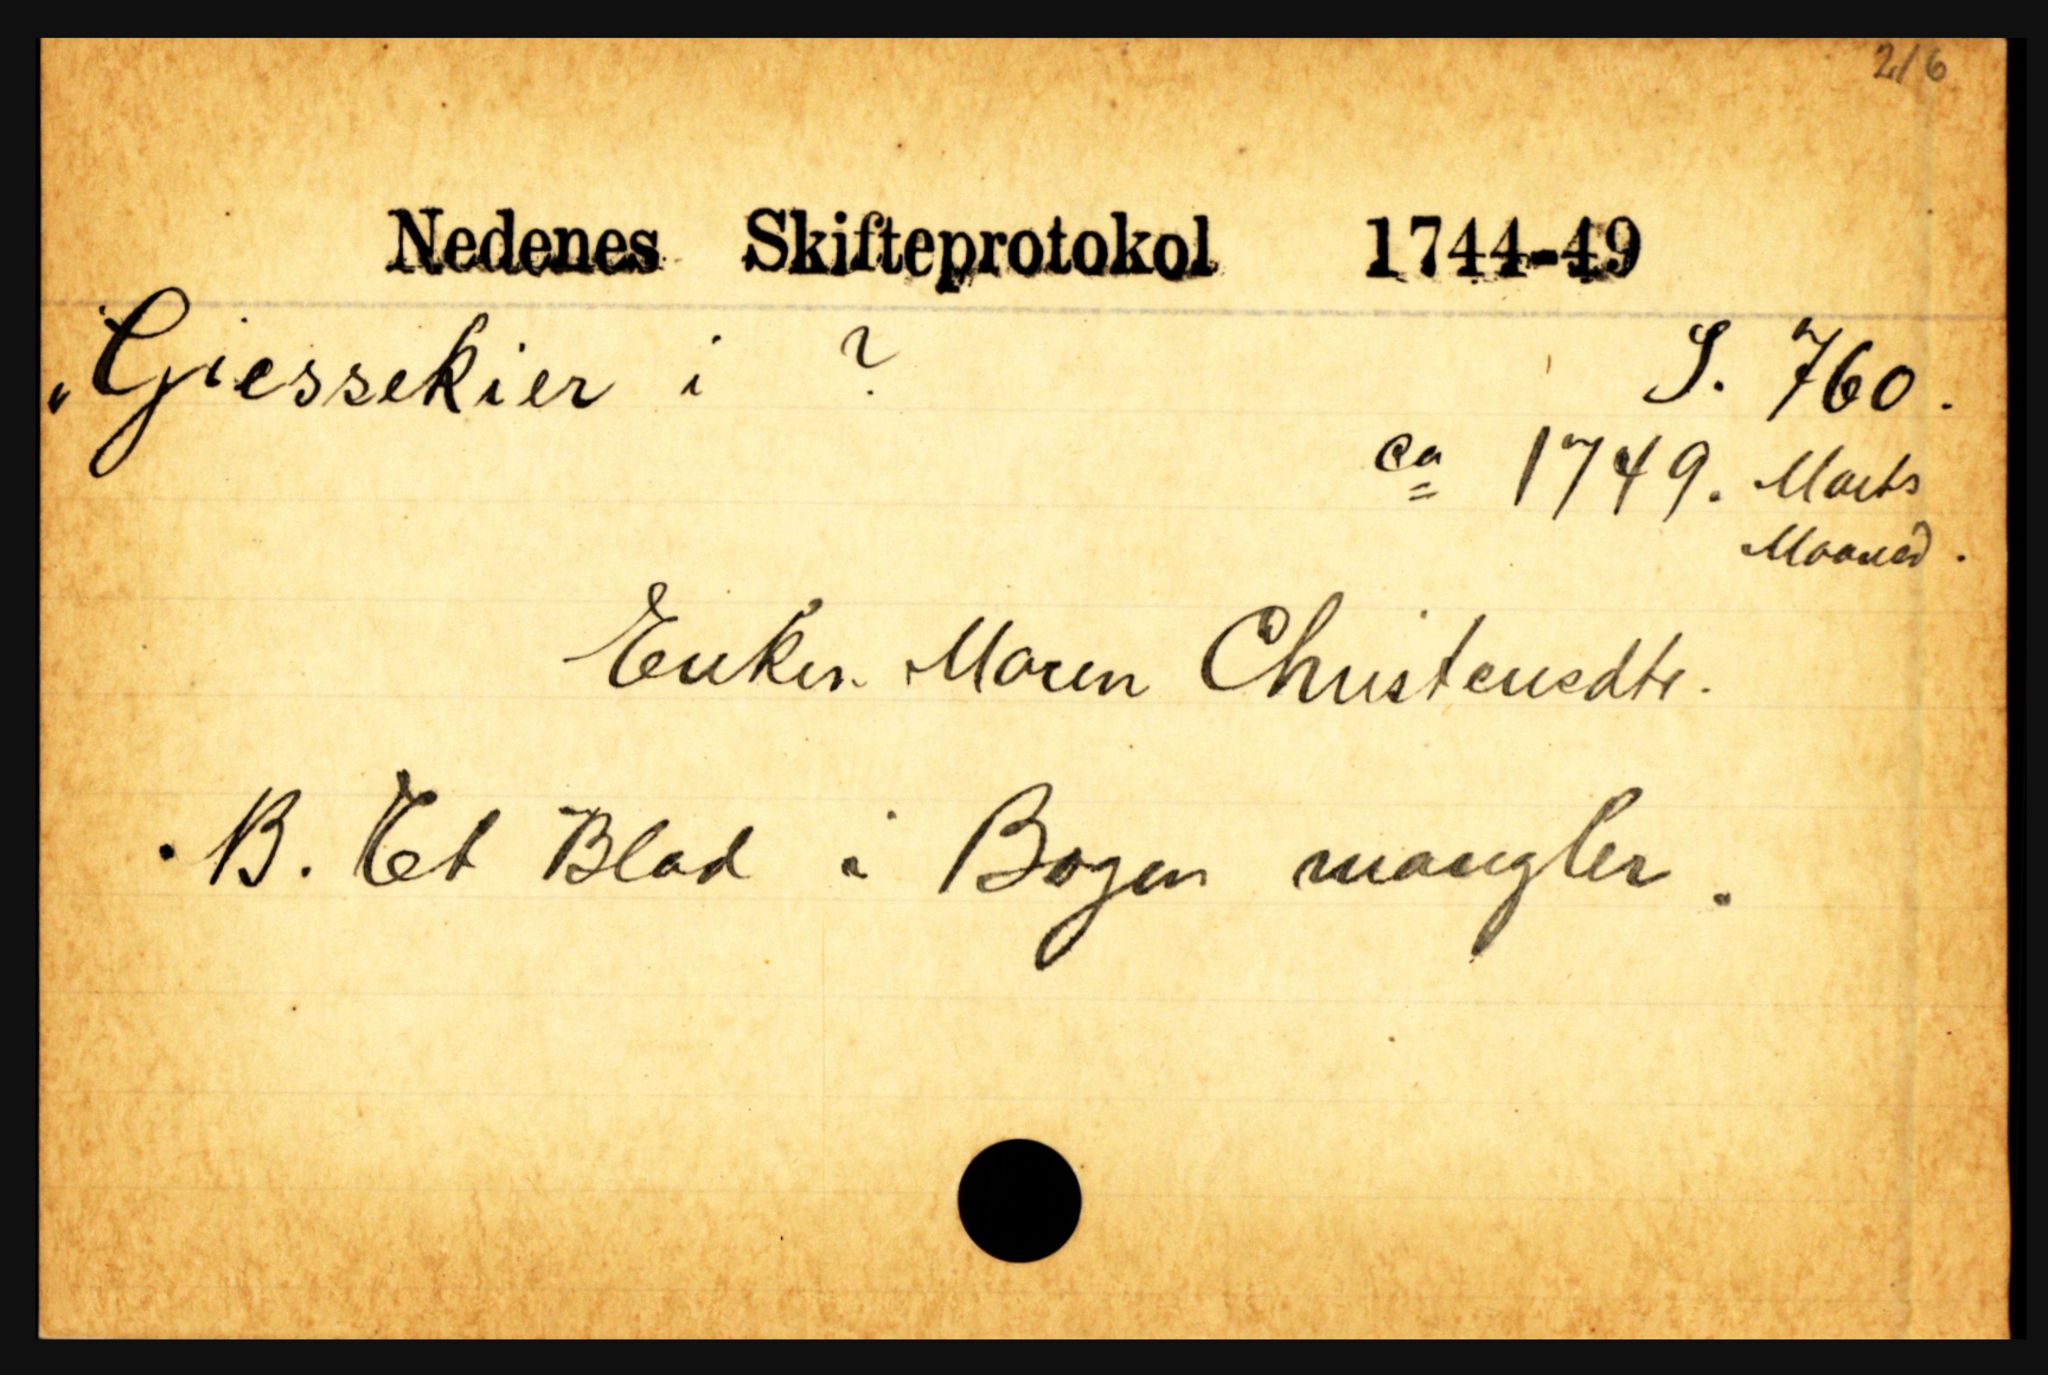 216
Nedenes Skifteprotokol 1744-49
„Giessekier i ? S. 760.
ca 1749. Marts
Maaned.
Enken Maren Christensdtr.
N.B. Et Blad i Bogen mangler.